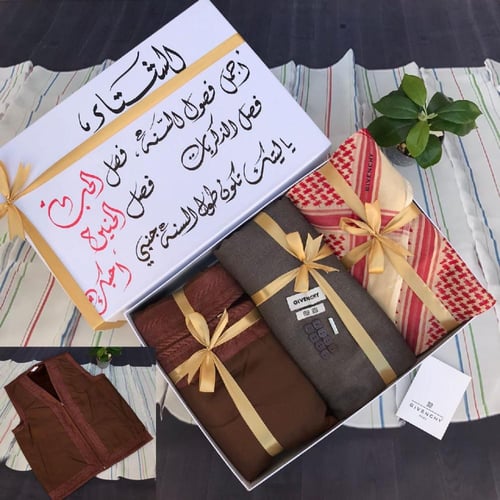 الشتاء،
أجمل فصول السنة، فصل الحب
فصل الذكريات فصل الحنين
ياليتك تكون طول السنة جنبي
أحبك
GIVENCHY
GIVENCHY
GIVENCHY